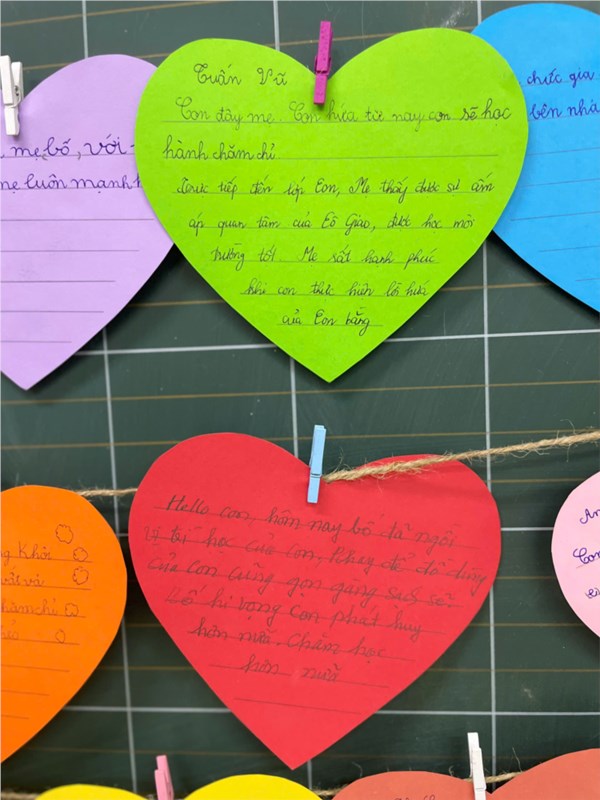 Tuấn Vũ
Con đây mẹ. Con hứa từ nay con sẽ học
hành chăm chỉ
Trực tiếp đến lớp Con, Mẹ thấy được sự ấm
áp quan tâm của Cô Giáo, được học môi
trường tốt. Mẹ rất hạnh phúc
khi con thực hiện lời hứa
của Con bằng
mẹ bố, với
mẹ luôn mạnh
chúc gia
bên nhà
Hello con, hôm nay bố đã ngồi
vị trí học của con. Khay để đồ dùng
của con cũng gọn gàng sạch sẽ.
Bố hi vọng con phát huy
hơn nữa. Chăm học
hơn nữa
Khôi
vất vả
chăm chỉ
An
Con